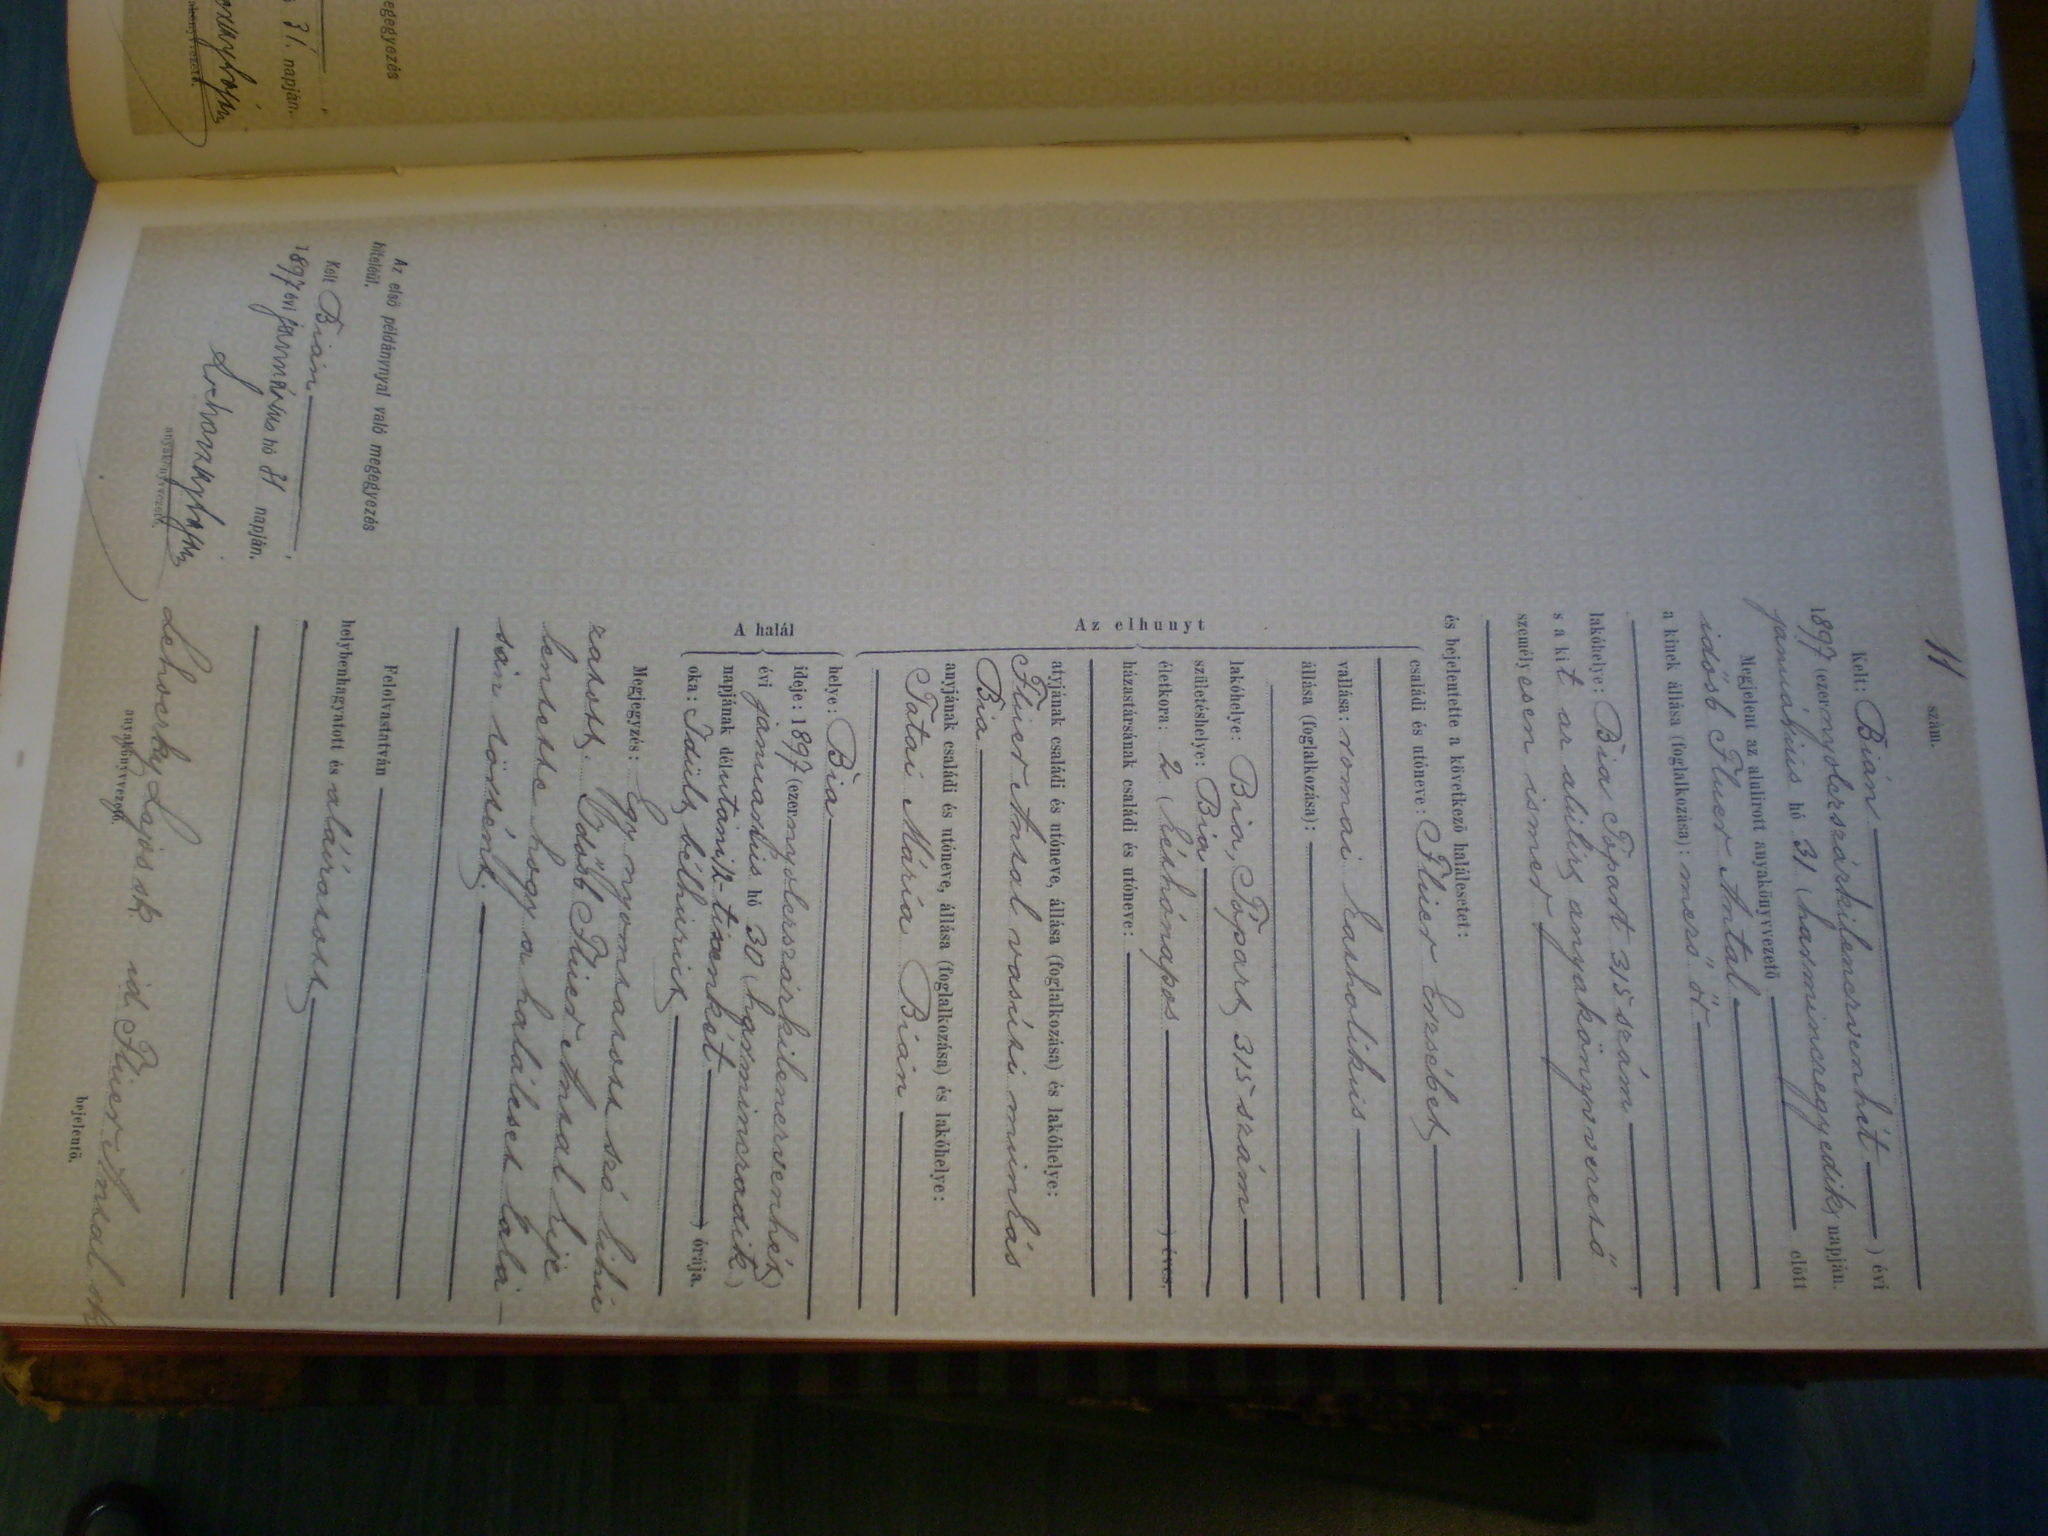 11 szám.
Kelt: Bián
1897 (ezernyolczszázkilenczvenhét) évi
januárius hó 31 (harminczegyedik) napján.
Megjelent az alulirott anyakönyvvezető előtt
idősb Flier Antal
a kinek állása (foglalkozása): mezőőr
lakóhelye: Bia Tópart 315 szám,
s a kit az alúlirt anyakönyvvezető
személyesen ismer,
és bejelentette a következő halálesetet:
Az elhunyt
családi és utóneve: Flier Erzsébet
állása (foglalkozása):
vallása: romai katholikus
lakóhelye: Bia, Tópart 315 szám
születéshelye: Bia
életkora: 2 (két) hónapos ) éves.
házastársának családi és utóneve:
atyjának családi és utóneve, állása (foglalkozása) és lakóhelye:
Flier Antal vasúti munkás
Bia
anyjának családi és utóneve, állása (foglalkozása) és lakóhelye:
Tatai Mária Bián
A halál
helye: Bia
ideje: 1897 (ezernyolczszázkilenczvenhét)
évi januárius hó 30 (harminczadik)
napjának délutáni 12 tizenkét ) órája.
oka: Idült bélhurut
Megjegyzés: Egy nyomtatott szó kihú
zatott. Idősb Flier Antal kije
lentette hogy a haláleset tatá
sán történt.
Felolvastatván
helybenhagyatott és aláíratott
Lehoczky Lajos sk
anyakönyvvezető.
id Flier Antal sk
bejelentő.
Az első példánynyal való megegyezés
hiteléül.
Kelt Bián,
1897 évi januárius hó 31 napján.
anyakönyvvezető.
egegyezés
31. napján.